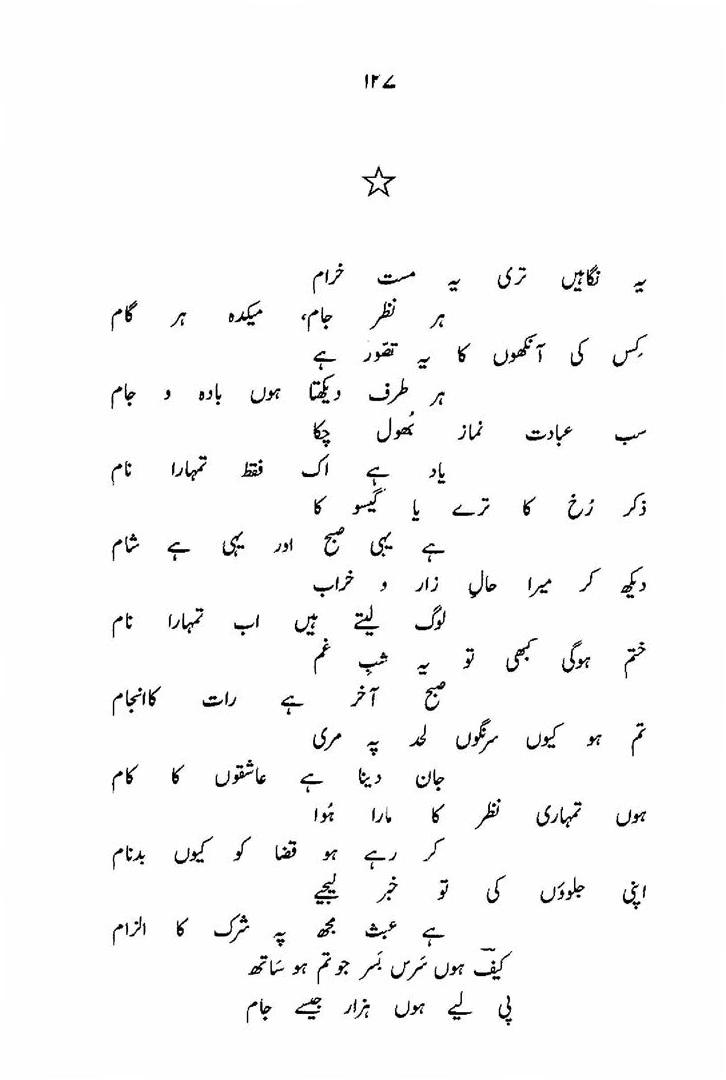 ۱۲۷
یہ نگاہیں تری یہ مست خرام
ہر نظر جام، میکدہ ہر گام
کِس کی آنکھوں کا یہ تصّور ہے
ہر طرف دیکھتا ہوں بادہ و جام
سب عبادت نماز بُھول چکا
یاد ہے اک فقط تمہارا نام
ذکر رُخ کا ترے یا گیسو کا
ہے یہی صبح اور یہی ہے شام
دیکھ کر میرا حالِ زار و خراب
لوگ لیتے ہیں اب تمہارا نام
ختم ہوگی کبھی تو یہ شبِ غم
صبح آخر ہے رات کاانجام
تم ہو کیوں سرنگوں لحد پہ مری
جان دینا ہے عاشقوں کا کام
ہوں تمہاری نظر کا مارا ہُوا
کر رہے ہو قضا کو کیوں بدنام
اپنی جلوؤں کی تو خبر لیجیے
ہے عبث مجھ پہ شرک کا الزام
کیفؔ ہوں سَرس بَسر جو تم ہو سَاتھ
پی لیے ہوں ہزار جیسے جام